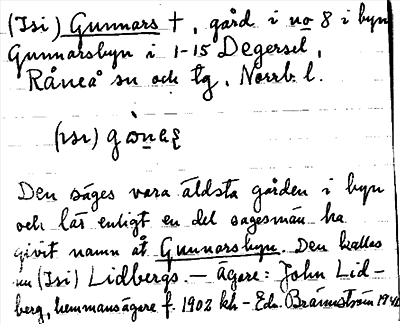 (Isi) Gunnars †, gård i no 8 i byn
Gunnarsbyn i 1-15 Degersel,
Råneå sn och tg, Norrb. l.
(ɪsɪ)
Den säges vara äldsta gården i byn
och lär enligt en del sagesmän ha
givit namn åt Gunnarsbyn. Den kallas
nu (Isi) Lidbergs. — Ägare: John Lid-
berg, hemmansägare f. 1902 kh - Edv. Brännström 1940